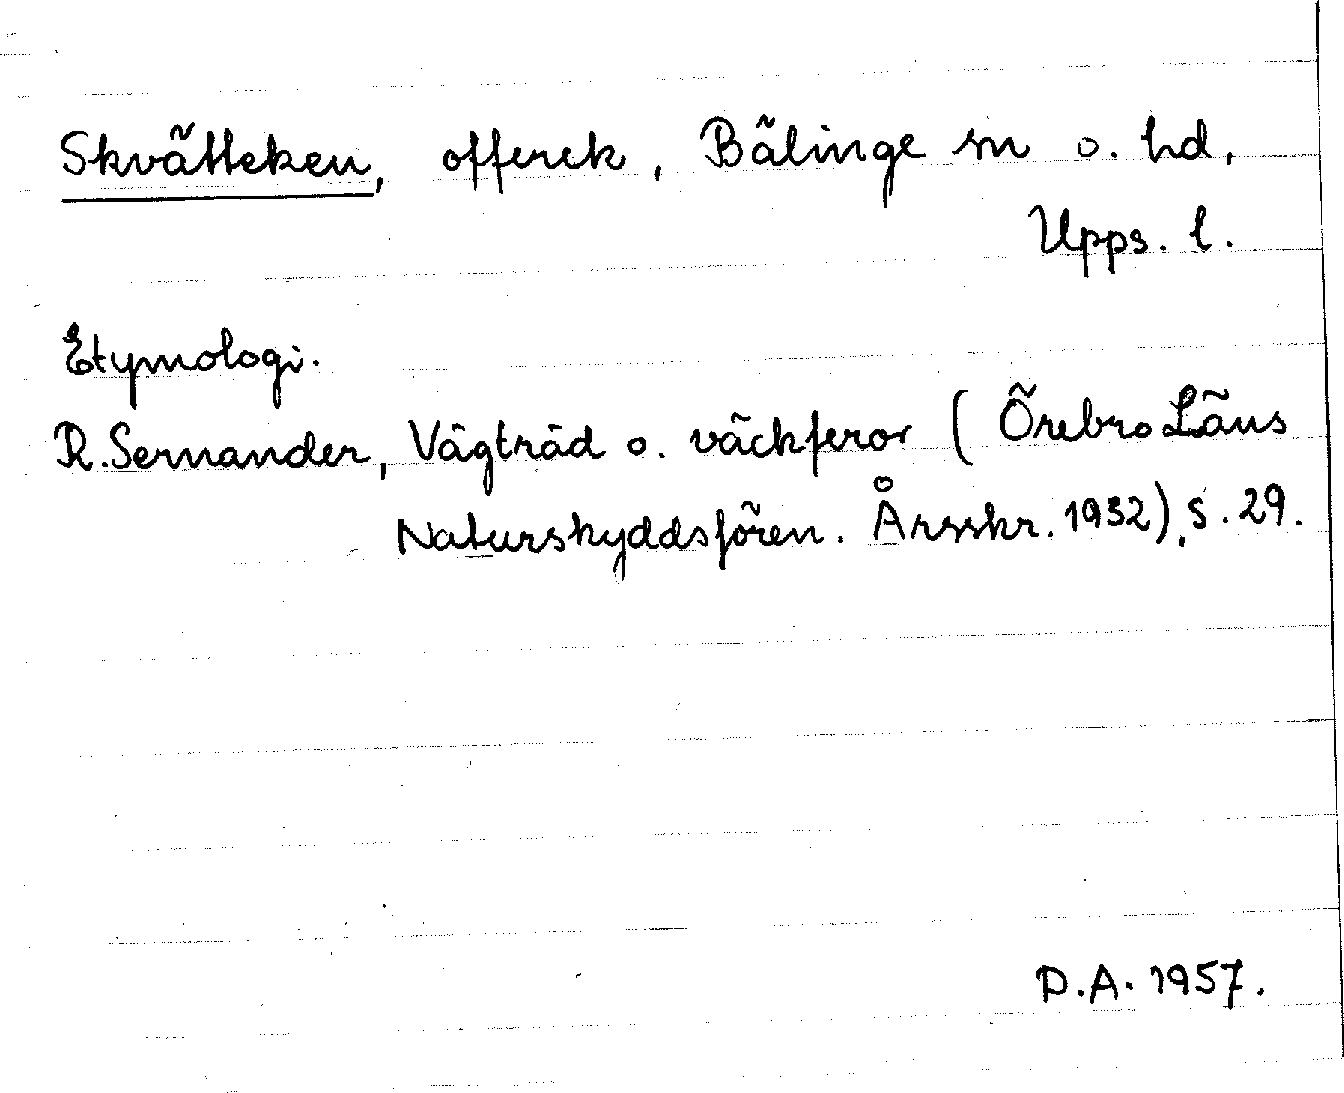 Skvätteken, offerek, Bälinge sn o. hd,
Upps. l.
Etymologi.
R. Sernander, Vägträd o. väckferor (Örebro Läns
Naturskyddsfören. Årsskr. 1932), s. 29.
D.A. 1957.